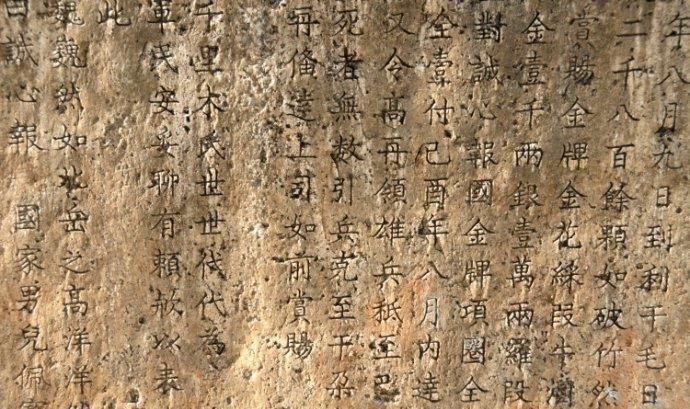 年八月九日到利干毛日
二千八百餘顆如破竹然
賞賜金牌金花綵段牛
金壹千兩銀壹萬兩羅段
對誠心報國金牌項圈全
全壹付己酉年八月內達
又令高再領雄兵秪至巴
死者無数引兵尅至干朶
再俻達上引如前賞賜
千里木氏世世代代為
軍民安妥聊有頼故以表
此
巍巍然如北岳之高洋洋
曰誠心報 國家男兒佩